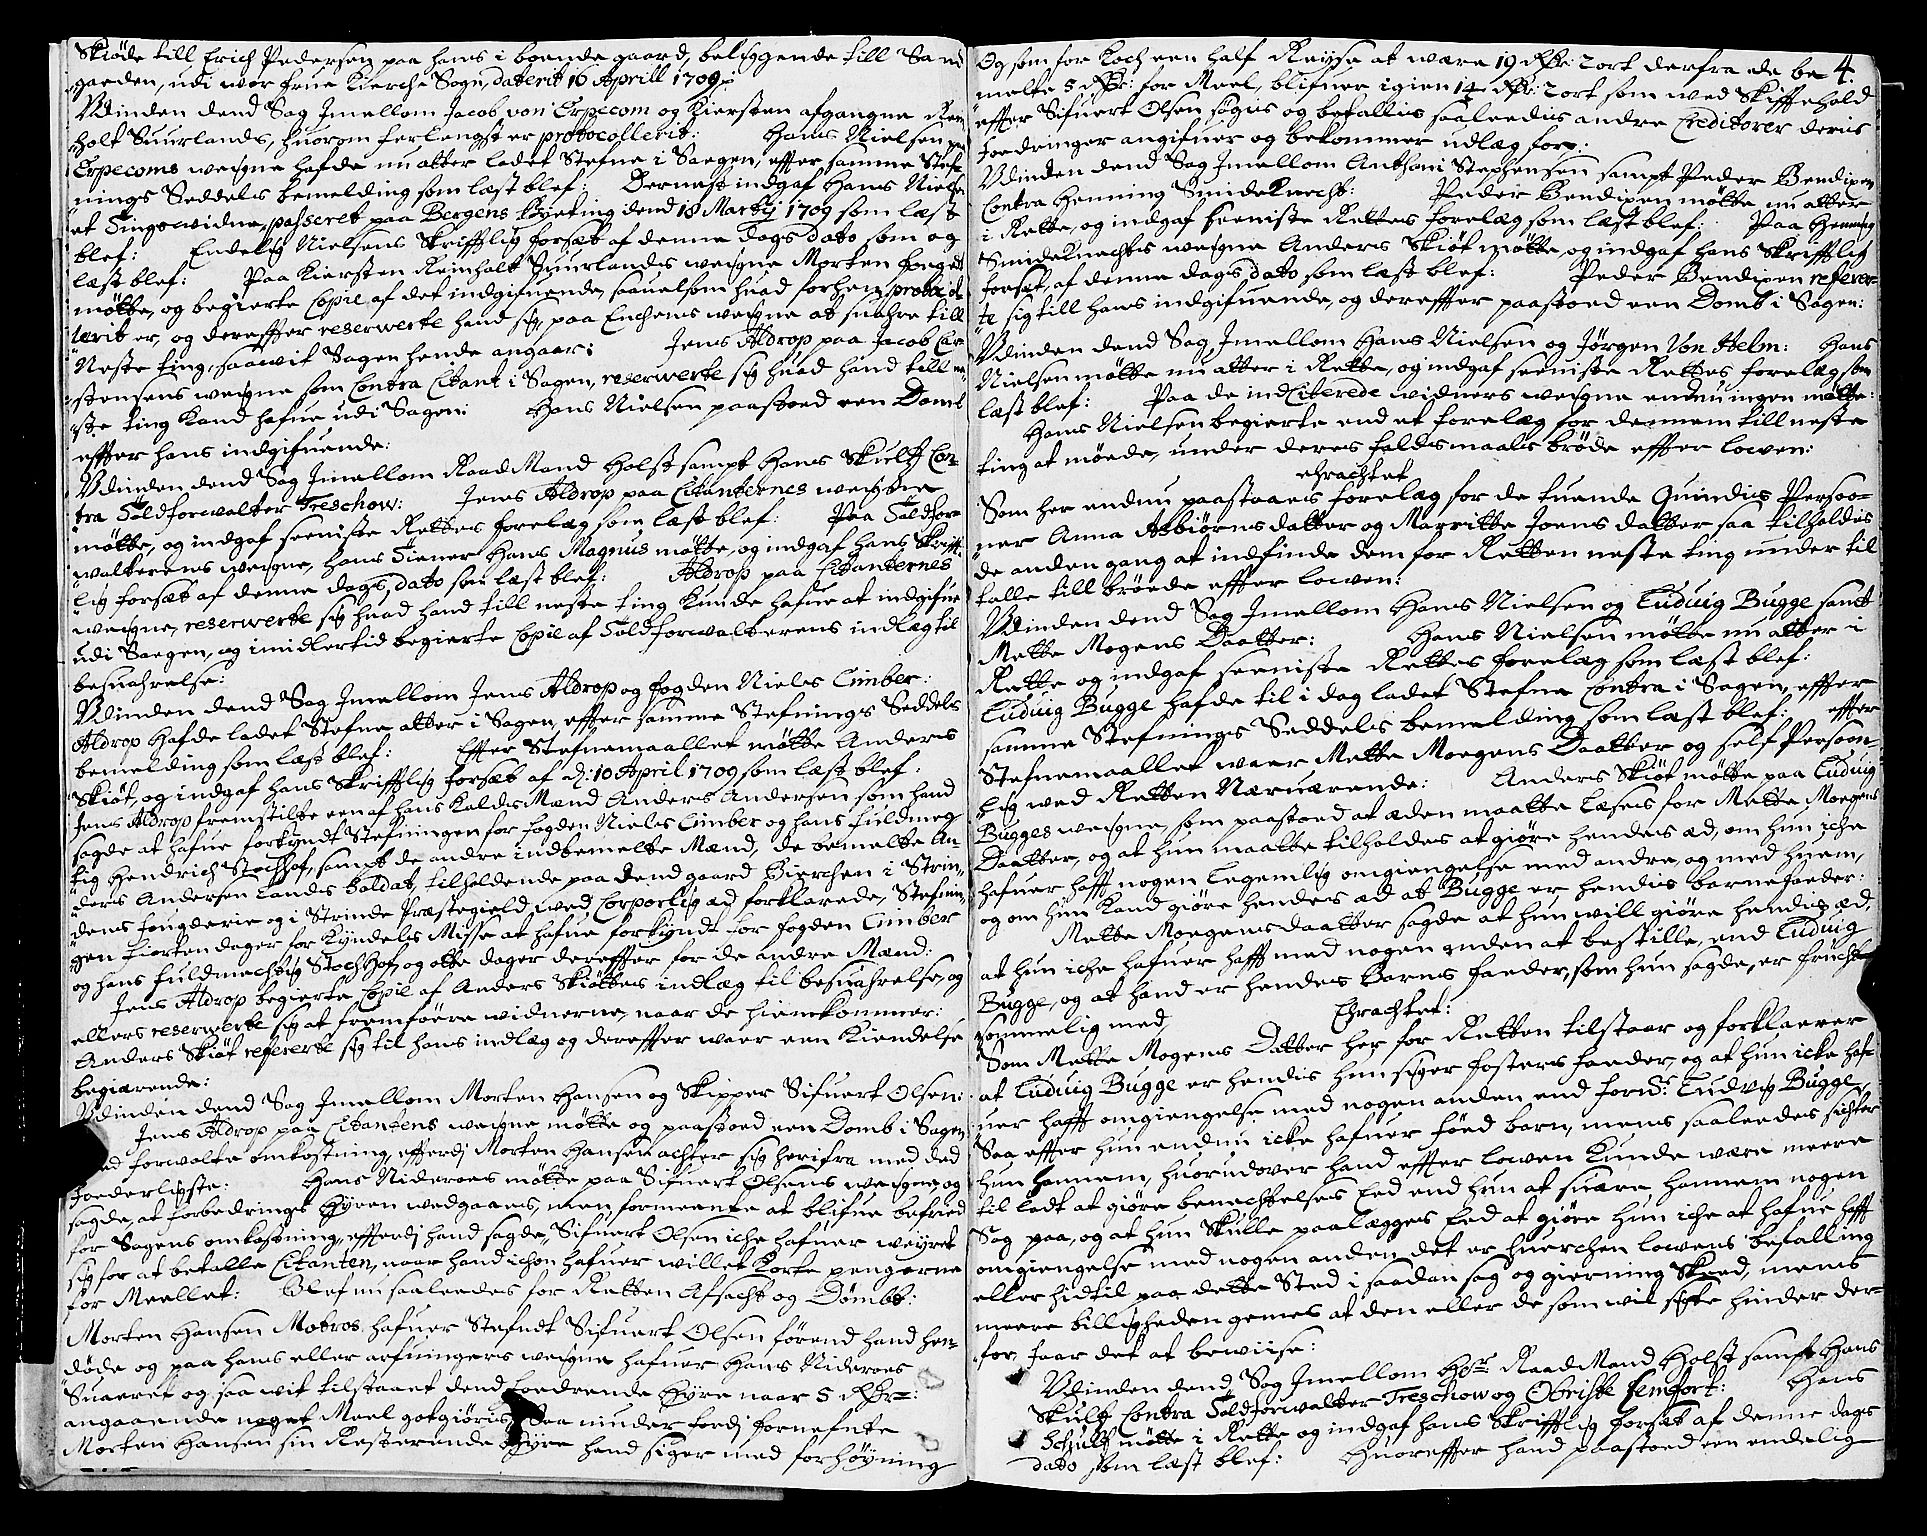 Skiöde till Erich Pedersen paa hans i boende gaard, beliggende till Sand
gaeden, udi wor frue Kierche Sogn, daterit 16 Aprill 1709:
Udinden dend Sag Imellom Jacob von Erpecom og Kiersten afgangne Rein
holt Suurlands, huorom forlengst er protocollerit: Hans Nielsen paa
Erpecoms weigne hafde nu atter ladet Stefne i Saegen, effter samme Stef-
nings Seddels bemelding som læst blef: Dernest indgaf Hans Nielsen
et Tingswidne, passeret paa Bergens byeting dend 18 Martij 1709 som læst
blef: Endelig Nielsens Skrifftlig forsæt af denne dags dato som og
læst blef: Paa Kiersten Reinholt Suurlands weigne Morten foeget
mötte, og begierte Copie af det indgifuende, saauelsom huad forhen protocol-
lerit er, og dereffter reserwerte hand sig, paa Enchens weigne at suahre till
Neste ting, saawit Sagen hende angaar: Jens Aldrop paa Jacob Car
stensens weigne som Contra Citant i Sagen, reserwerte sig huad hand till ne
ste ting Kand hafue udi Sagen: Hans Nielsen paastoed een Domb
effter hans indgifuende:
Udinden dend Sag Imellom Raad Mand Holst sampt Hans Skultz Con-
tra Toldforwalter Treschow: Jens Aldrop paa Citanternes weigne
mötte, og indgaf seeniste Rettes forelæg som læst blef: Paa Toldfor
walterens weigne, hans Tiener Hans Magnus mötte, og indgaf hans Skrifft-
lig forsæt af denne dags dato som læst blef: Aldrop paa Citanternes
weigne, reserwerte sig huad hand till neste ting Kunde hafue at indgifue
udi Saegen, og imidlertid begierte Copie af Toldforwalterens indlæg til
besuahrelse:
Udinden dend Sag Imellom Jens Aldrop og fogden Niels Cimber:
Aldrop Hafde ladet Stefne atter i Sagen, effter samme Stefnings Seddels
bemelding som læst blef: Effter Stefnemaallet mötte Anders
Skiöt, og indgaf hans Skrifftlig forsæt af d: 10 April 1709 som læst blef:
Jens Aldrop fremstilte een af hans Kalds Mænd Anders Andersen som hand
sagde at hafue forkyndt Stefningen for fogden Niels Cimber og hans fuldmeg
tig Hendrich Stochhof, sampt de andre indbemelte Mænd, de bemelte An-
ders Andersen Lands Soldat, tilholdende paa dend gaard Bierchen i Strin-
dens fougderie og i Strinde Præstegield, wed Corporlig æd forklarede, Stefnin-
gen fiorten dager for Kyndels Misse at hafue forkyndt for fogden Cimber
og hans fuldmechtig Stochhof, og otte dager dereffter for de andre Mænd:
Jens Aldrop begierte Copie af Anders Skiöttes indlæg til besuahrelse, og
ellers reserwerte sig at fremföere widnerne, naar de hiemkommer:
Anders Skiöt refererte sig til hans indlæg og dereffter waer een Kiendelse
begiærende:
Udinden dend Sag Imellom Morten Hansen og Skipper Sifuert Olsen:
Jens Aldrop paa Citantens weigne mötte og paastoed een Domb i Sagen
forwolte omkostning, efferdj Morten Hansen achter sig herifra med ded
foederligste: Hans Nideroes mötte paa Sifuert Olsens weigne, og
sagde, at forbedrings Hyren wedgaaes, men formeente at blifue befried
for Sagens omkostning, efferdj hand sagde, Sifuert Olsen iche hafuer weyret
sig for at betalle Citanten, naar hand ichon hafuer willet Korte pengerne
for Meellet: Blef nu saaledes for Retten Afsacht og Dömbt:
Morten Hansen Motros hafuer Stefndt Sifuert Olsen förend hand hen-
döde og paa hans eller arfuingers weigne hafuer Hans Nideroes
Suaeret og saa wit tilstaaet dend foedrende Hyre naar 5 Rdr:
angaaende noget Meel gotgiöris Saa minder fordj fornefnte
Morten Hansen sin Resterende Hyre hand siger med forhöyning
4
Og som for Koch een half Reyse at wære 19 Rdr: 2 ort derfra de be
melte 5 Rdr: for Meel, blifuer igien 14 Rdr: 2 ort som wed Skiffteholdet
effter Sifuert Olsen söges og befattes saaledis andre Creditorer deris
foedringer angifuer og bekommer udlæg for:
Udinden dend Sag Imellom Anthoni Stephensen sampt Peder Bendixen
Contra Henning Smideknecht: Peder Bendixen mötte nu atter
i Rette, og indgaf seeniste Rettes forelæg som læst blef: Paa Henning
Smideknechts weigne Anders Skiöt mötte, og indgaf hans Skrifftlig
forsæt, af denne dags dato som læst blef: Peder Bendixen referer-
te sig till hans indgifuende, og dereffter paastoed een Domb i Sagen:
Udinden dend Sag Imellom Hans Nielsen og Jörgen Von Helm: Hans
Nielsen mötte nu atter i Rette, og indgaf seeniste Rettes forelæg som
læst blef: Paa de ind Citerede widners weigne endnu ingen mötte:
Hans Nielsen begierte end et forelæg for dennem till neste
ting at möede, under deres faldsmaals bröde effter lowen:
ehrachtet
Som her endnu paastaaes forelæg for de tuende Quindis Persoo-
ner Anna Asbiörns datter og Marritte Joens datter saa tilholdes
de anden gang at indfinde dem for Retten neste ting under til
talle till bröede effter lowen:
Udinden dend Sag Imellom Hans Nielsen og Ludvig Bugge sampt
Mette Mogens Daatter: Hans Nielsen mötte nu atter i
Rette og indgaf seeniste Rettes forelæg som læst blef:
Ludvig Bugge hafde til i dag ladet Stefne Contra i Sagen, effter
samme Stefnings Seddels bemelding som læst blef: effter
Stefnemaallet waer Mette Moegens Daatter og self Persoon-
lig wed Retten Nærwærende: Anders Skiöt mötte paa Ludvig
Bugges weigne, som paastoed at æden maatte læses for Mette Moegens
Daatter, og at hun maatte tilholdes at giöre hendes æd, om hun iche
hafuer hafft nogen Legemlig omgiengelse med andre, og med huem,
og om hun Kand giöre hendes æd at Bugge er hendis barnefaeder:
Mette Moegensdaatter sagde at hun will giöre hendis æd,
at hun iche hafuer hafft med nogen anden at bestille, end Ludvig
Bugge, og at hand er hendes Barns faeder, som hun sagde, er frucht
sommelig med, Ehrachtet:
Som Mette Mogens Datter her for Retten tilstaar og forklaerer
at Ludvig Bugge er hendis hun siger fosters faeder, og at hun icke haf-
uer hafft omgiengelse med nogen anden end forn. Ludvig Bugge,
Saa effter hun endnu icke hafuer föed barn, mens saaledes sichter
hun hannem, huorudover hand effter lowen Kunde wære meere
til ladt at giöre benechtelses Eed end hun at suære hannem nogen
Sag paa, og at hun skulle paalægges Eed at giöre hun iche at hafue hafft
omgiengelse med nogen anden, det er huerchen lowens befalling
eller hidtil paa dette Sted i saadan sag og gierning Skeed, mens
meere billigheden gemes at den eller de som wil sigte hinder der-
for, faar det at bewiise:
Udinden dend Sag Imellom Hr Raad Mand Holst sampt Hans
Skultz Contra Toldforwalter Treschow og Obriste Lemfort: Hans
Schultz mötte i Rette og indgaf hans Skrifftlig forsæt af denne dags
dato som læst blef: Huoreffter hand paastoed een endelig